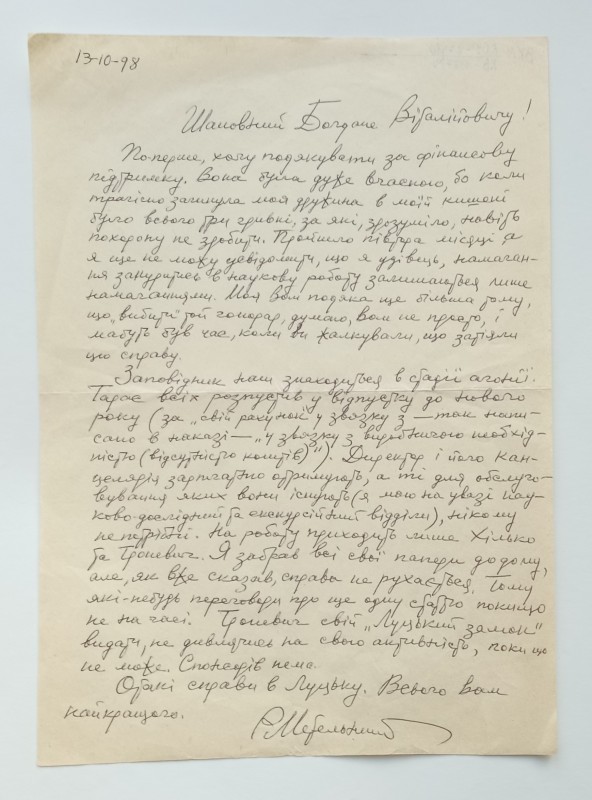 13-10-98
Шановний Богдане Віталійовичу!
По-перше, хочу подякувати за фінансову
підтримку. Вона була дуже вчасною, бо коли
трагічно загинула моя дружина в моїй кишені
було всього три гривні, за які, зрозуміло, навіть
похорону не зробити. Пройшло півтора місяці а
я ще не можу усвідомити, що я удівець, намаган-
ня зануритись в наукову роботу залишаються лише
намаганнями. Моя вам подяка ще більша тому,
що „вибити" той гонорар, думаю, вам не просто, і
мабуть був час, коли ви жалкували, що затіяли
цю справу.
Заповідник наш знаходиться в стадії агонії.
Тарас всіх розпустив у відпустку до нового
року (за „свій рахунок" у звязку з — так напи-
сано в наказі — „у звязку з виробничою необхід-
ністю (відсутністю коштів)"). Директор і його кан-
целярія зарплатню отримують, а ті для обслуго-
вування яких вони існують (я маю на увазі нау-
ково-дослідний та екскурсійний відділи), нікому
непотрібні. На роботу приходить лише Хілько
та Троневич. Я забрав всі свої папери додому,
але, як вже сказав, справа не рухається. Тому
які-небудь переговори про ще одну статтю покищо
не на часі. Троневич свій „Луцький замок"
видати, не дивлячись на свою активність, поки що
не може. Спонсорів нема.
Отакі справи в Луцьку. Всього вам
найкращого.
Р. Метельницький